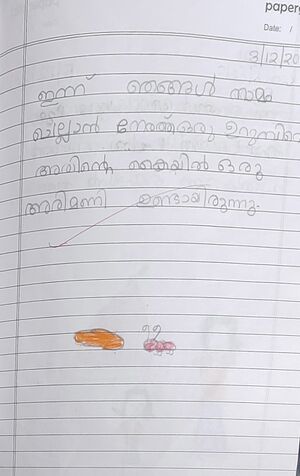 paperg
Date: /
3/12/20
ഇന്ന് ഞങ്ങൾ നാമം
ചൊല്ലാൻ നേരത്ത് ഒരു ഉറുമ്പിനെ
അതിൻ്റെ കൈയിൽ ഒരു
അരിമണി ഉണ്ടായിരുന്നു.